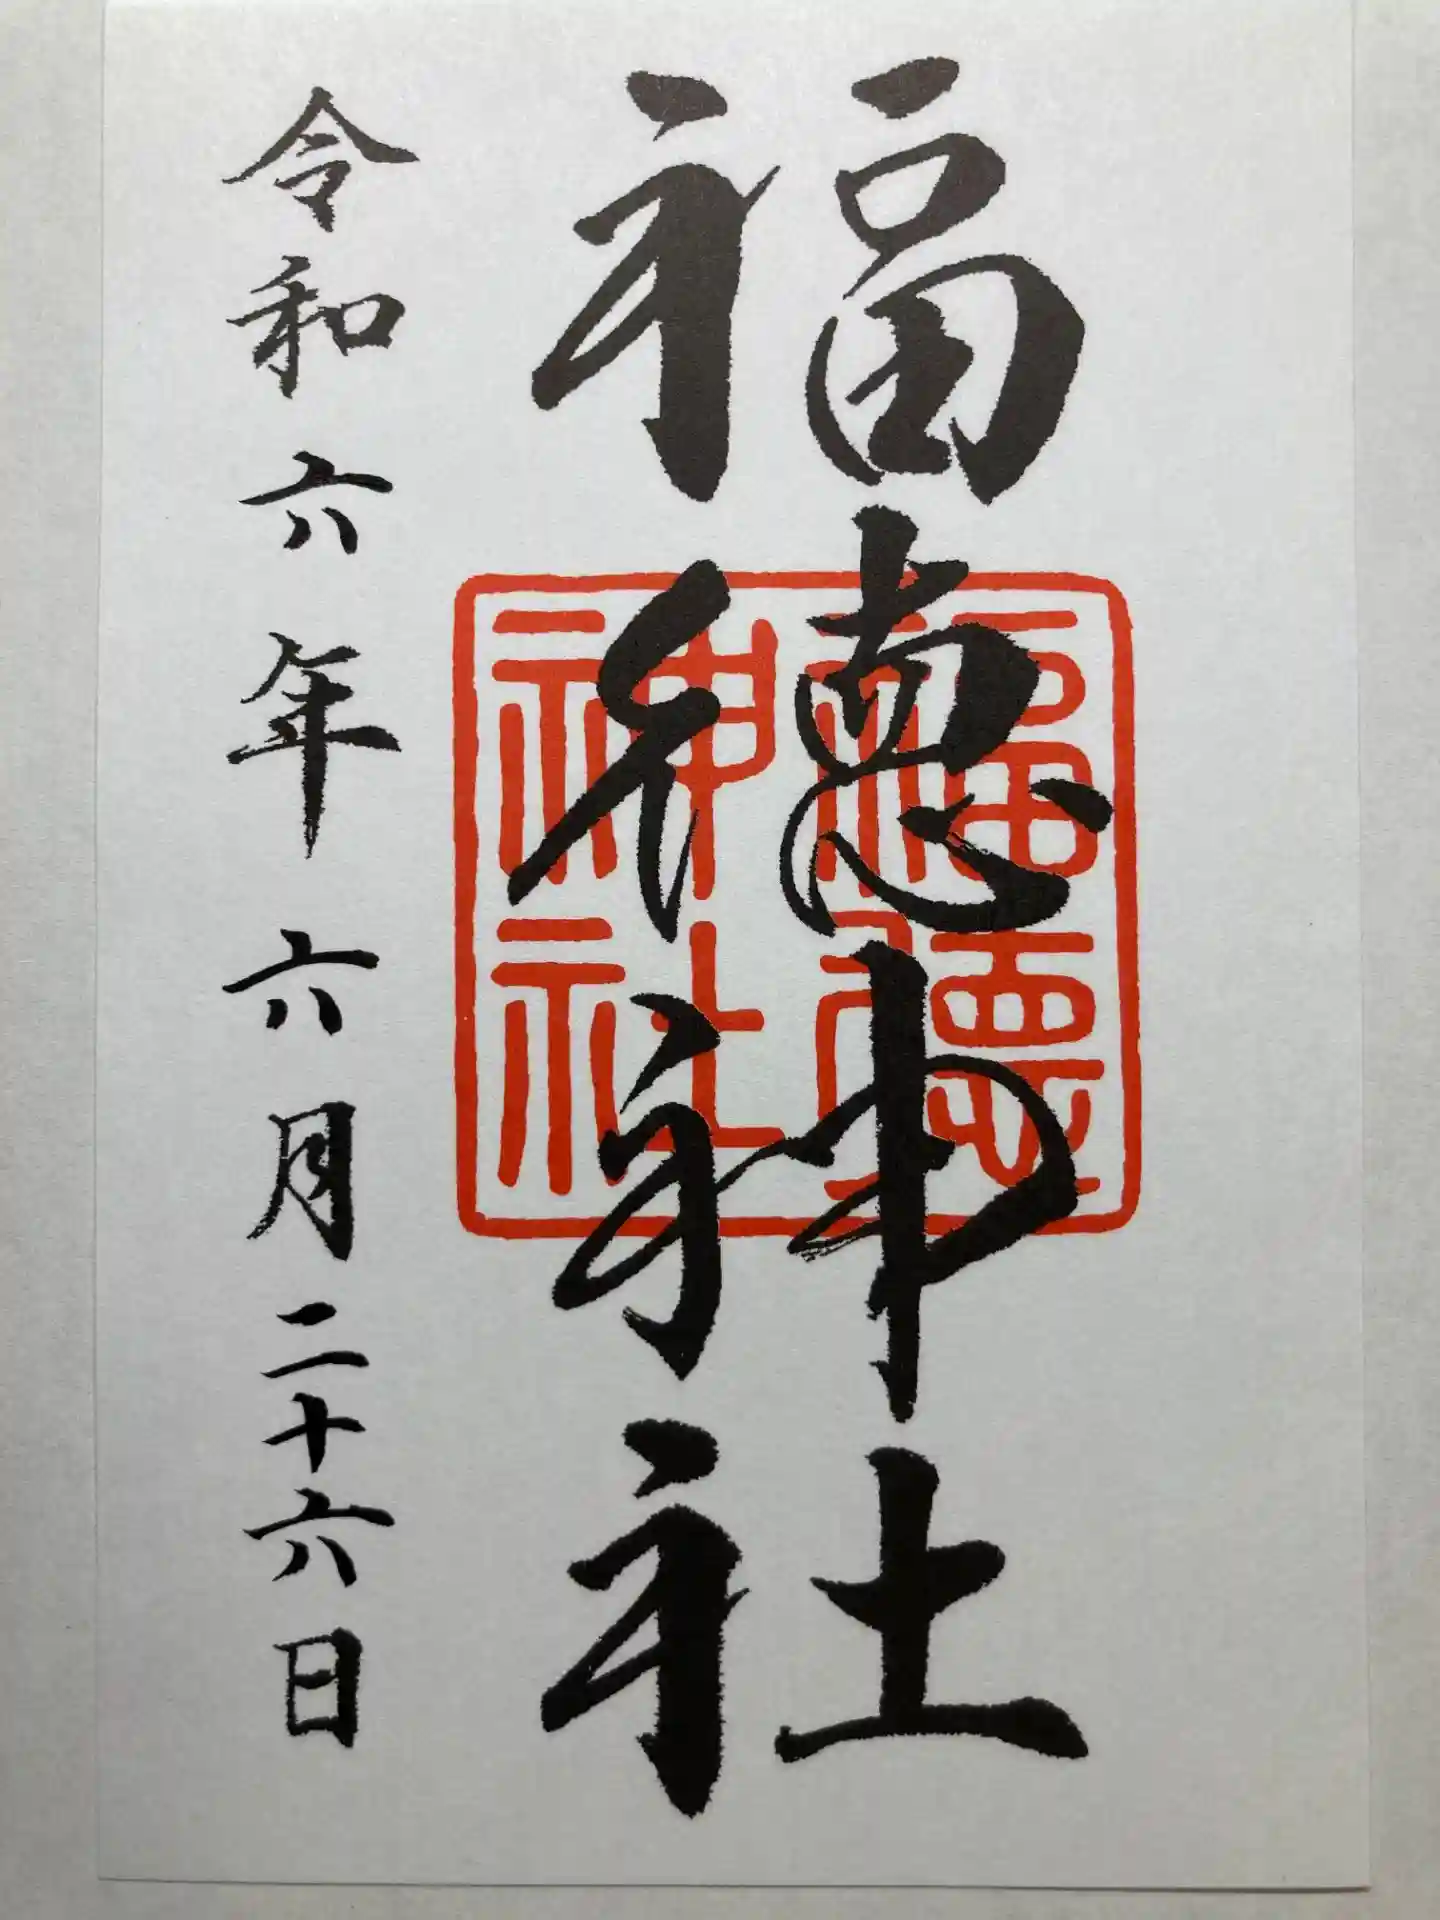 福徳神社
福徳
神社
令和六年六月二十六日